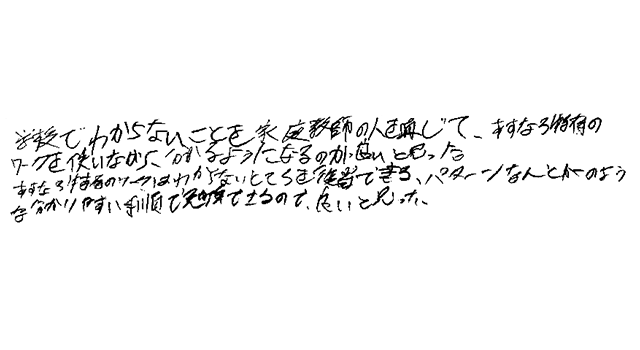 学校でわからないことを家庭教師の人を通じて、あすなろ特有の
ワークを使いながら、分かるようになるのが良いと思った
あすなろ特有のワークはわからないところを復習できる、パターンなんとかのよう
な分かりやすい手順で勉強できるので、良いと思った、